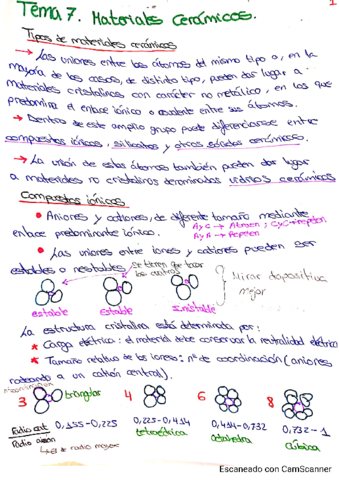 1
Tema 7. Materiales cerámicos.
Tipos de materiales cerámicos
→ Las uniones entre los átomos del mismo tipo o, en la
mayoría de los casos, de distinto tipo, pueden dar lugar a
materiales cristalinos con carácter no metálico, en los que
predomina el enlace iónico o covalente entre sus átomos.
→ Dentro de este amplio grupo puede diferenciarse entre
compuestos iónicos, silicatos y otros sólidos cerámicos.
→ La unión de estos átomos también pueden dar lugar
a materiales no cristalinos denominados vidrios cerámicos
Compuestos iónicos
• Aniones y cationes, de diferente tamaño mediante
enlace predominante iónico.
A y C → Atraen; C y C → Repelen
A y A → Repelen
• Las uniones entre iones y cationes pueden ser
estables o inestables.
Se tienen que tocar
los contrarios
estable
estable
Inestable
Mirar diapositiva
mejor
La estructura cristalina está determinada por:
* Carga eléctrica: el material debe conservar la neutralidad eléctrica
* Tamaño relativo de los iones: nº de coordinación (aniones
rodeando a un catión central).
3
triangular
4
6
8
Radio cat
Radio anión
0,155-0,225
0,225-0,414
tetraédrica
0,414-0,732
octaédrica
0,732-1
Cúbica
↳ El de radio mayor
Escaneado con CamScanner